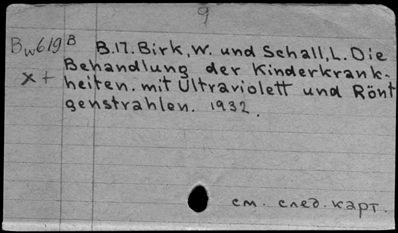 9
Bw619 B B.17. Birk, W. und Schall, L. Die
Behandlung der Kinderkrank-
x+ heiten. mit Ultraviolett und Rönt
genstrahlen. 1932.
см. след. карт.